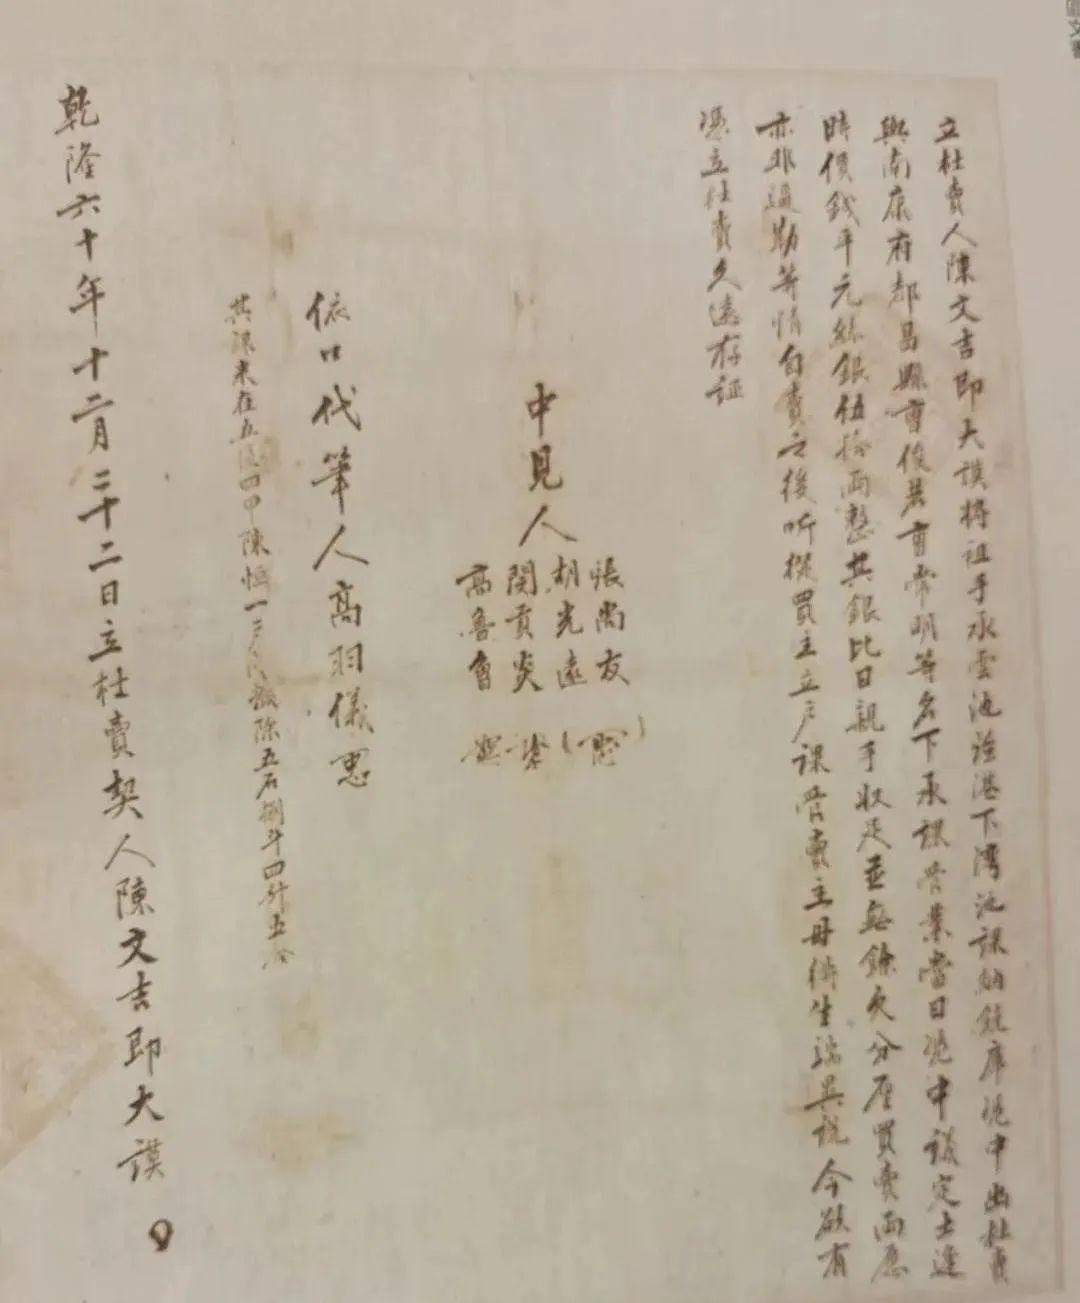 立杜賣人陳文吉即大謨將祖手承雲池詮港下灣池課納鈔庫凴中出杜賣
與南康府都昌縣曹俊 曹常明等名下承課管業當日凴中議定土逢
時價錢平元絲銀伍拾兩整其銀比日親手收足並無餘欠分厘買賣兩愿
亦非逼勒等情自賣之後听㨿買主立户課管賣主毋得生端異說今欲有
憑立杜賣久遠存証
中見人
張尚友
胡光遠
閔貢炎
高魯會
依口代筆人高羽儀
其課米在五 四甲陳恒一户 除五石捌斗四升五合
乾隆六十年十二月二十二日立杜賣契人陳文吉即大謨